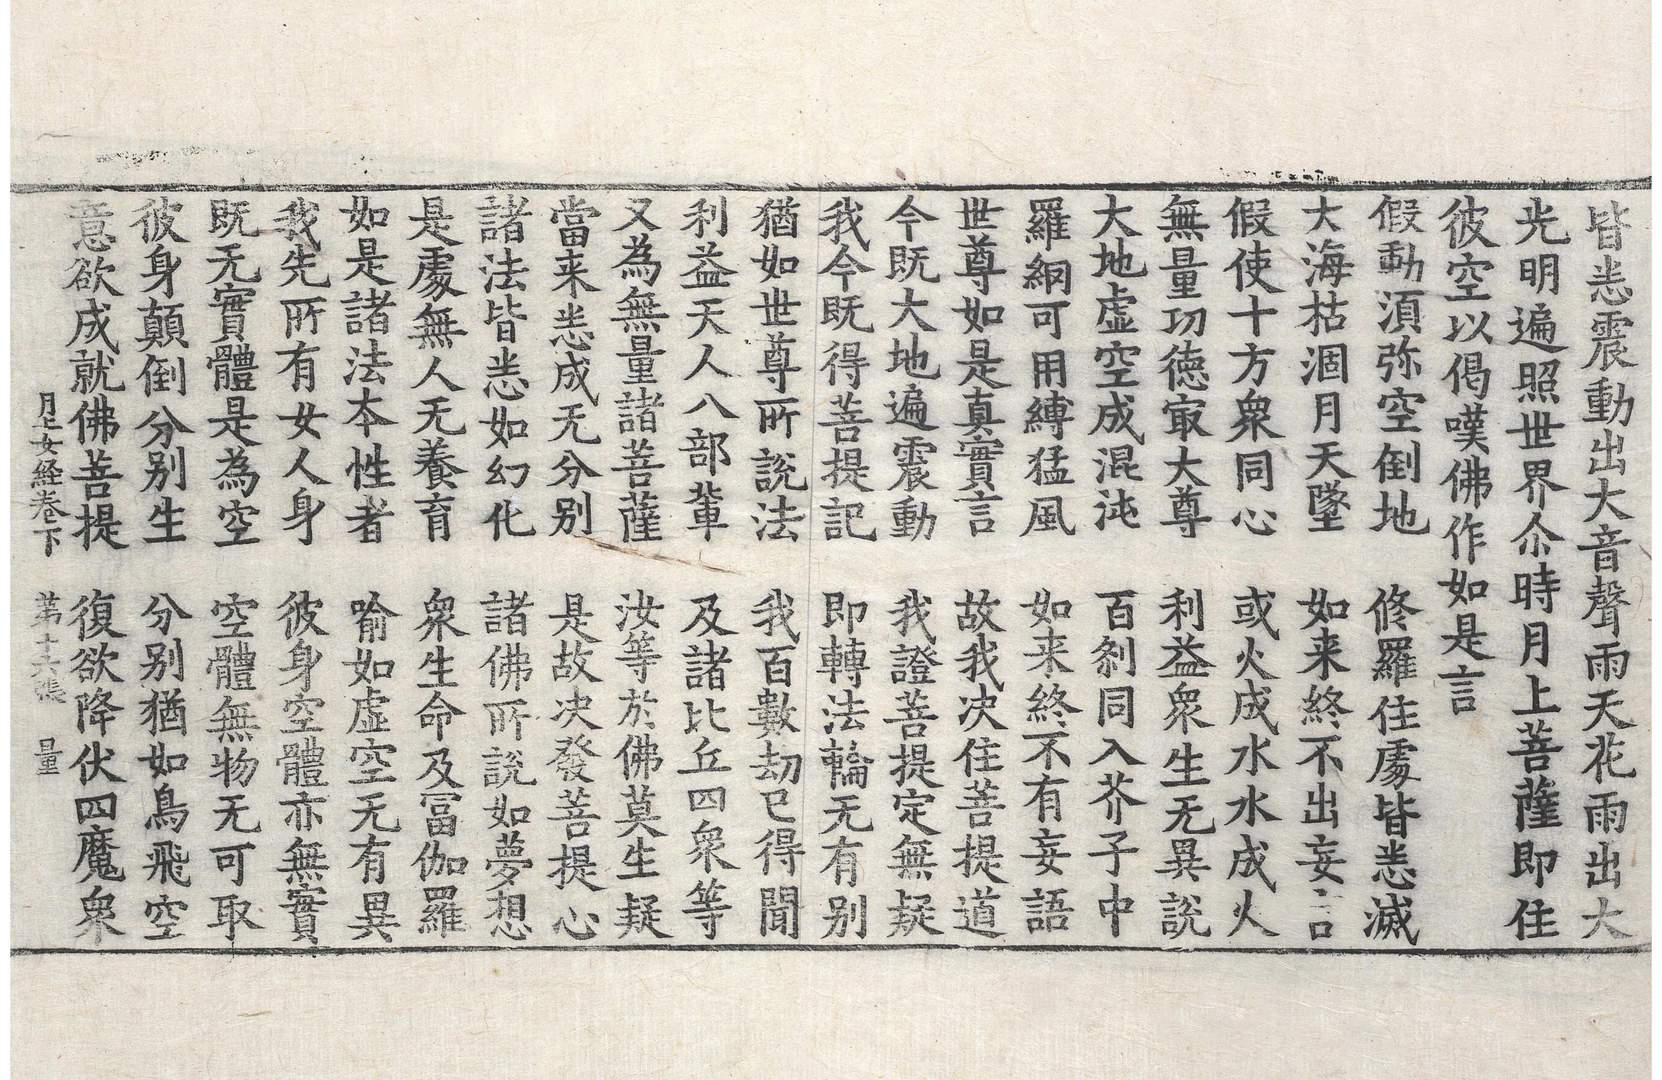 皆悉震動出大音聲雨天花雨出大
光明遍照世界尒時月上菩薩即住
彼空以偈嘆佛作如是言
假動湏弥空倒地　修羅住處皆悉滅
大海枯涸月天墜　如来終不出妄言
假使十方衆同心　或火成水水成火
無量功德㝡大尊　利益衆生无異說
大地虛空成混沌　百剎同入芥子中
羅網可用縛猛風　如来終不有妄語
世尊如是真實言　故我决住菩提道
今既大地遍震動　我證菩提定無疑
我今既得菩提記　即轉法輪无有别
猶如世尊所說法　我百數劫已得聞
利益天人八部輩　及諸比丘四衆等
又為無量諸菩薩　汝等於佛莫生疑
當来悉成无分别　是故决發菩提心
諸法皆悉如幻化　諸佛所說如夢想
是處無人无養育　衆生命及冨伽羅
如是諸法本性者　喻如虛空无有異
我先所有女人身　彼身空體亦無實
既无實體是為空　空體無物无可取
彼身顛倒分别生　分别猶如鳥飛空
意欲成就佛菩提　復欲降伏四魔衆
月上女経卷下　第十六張　量